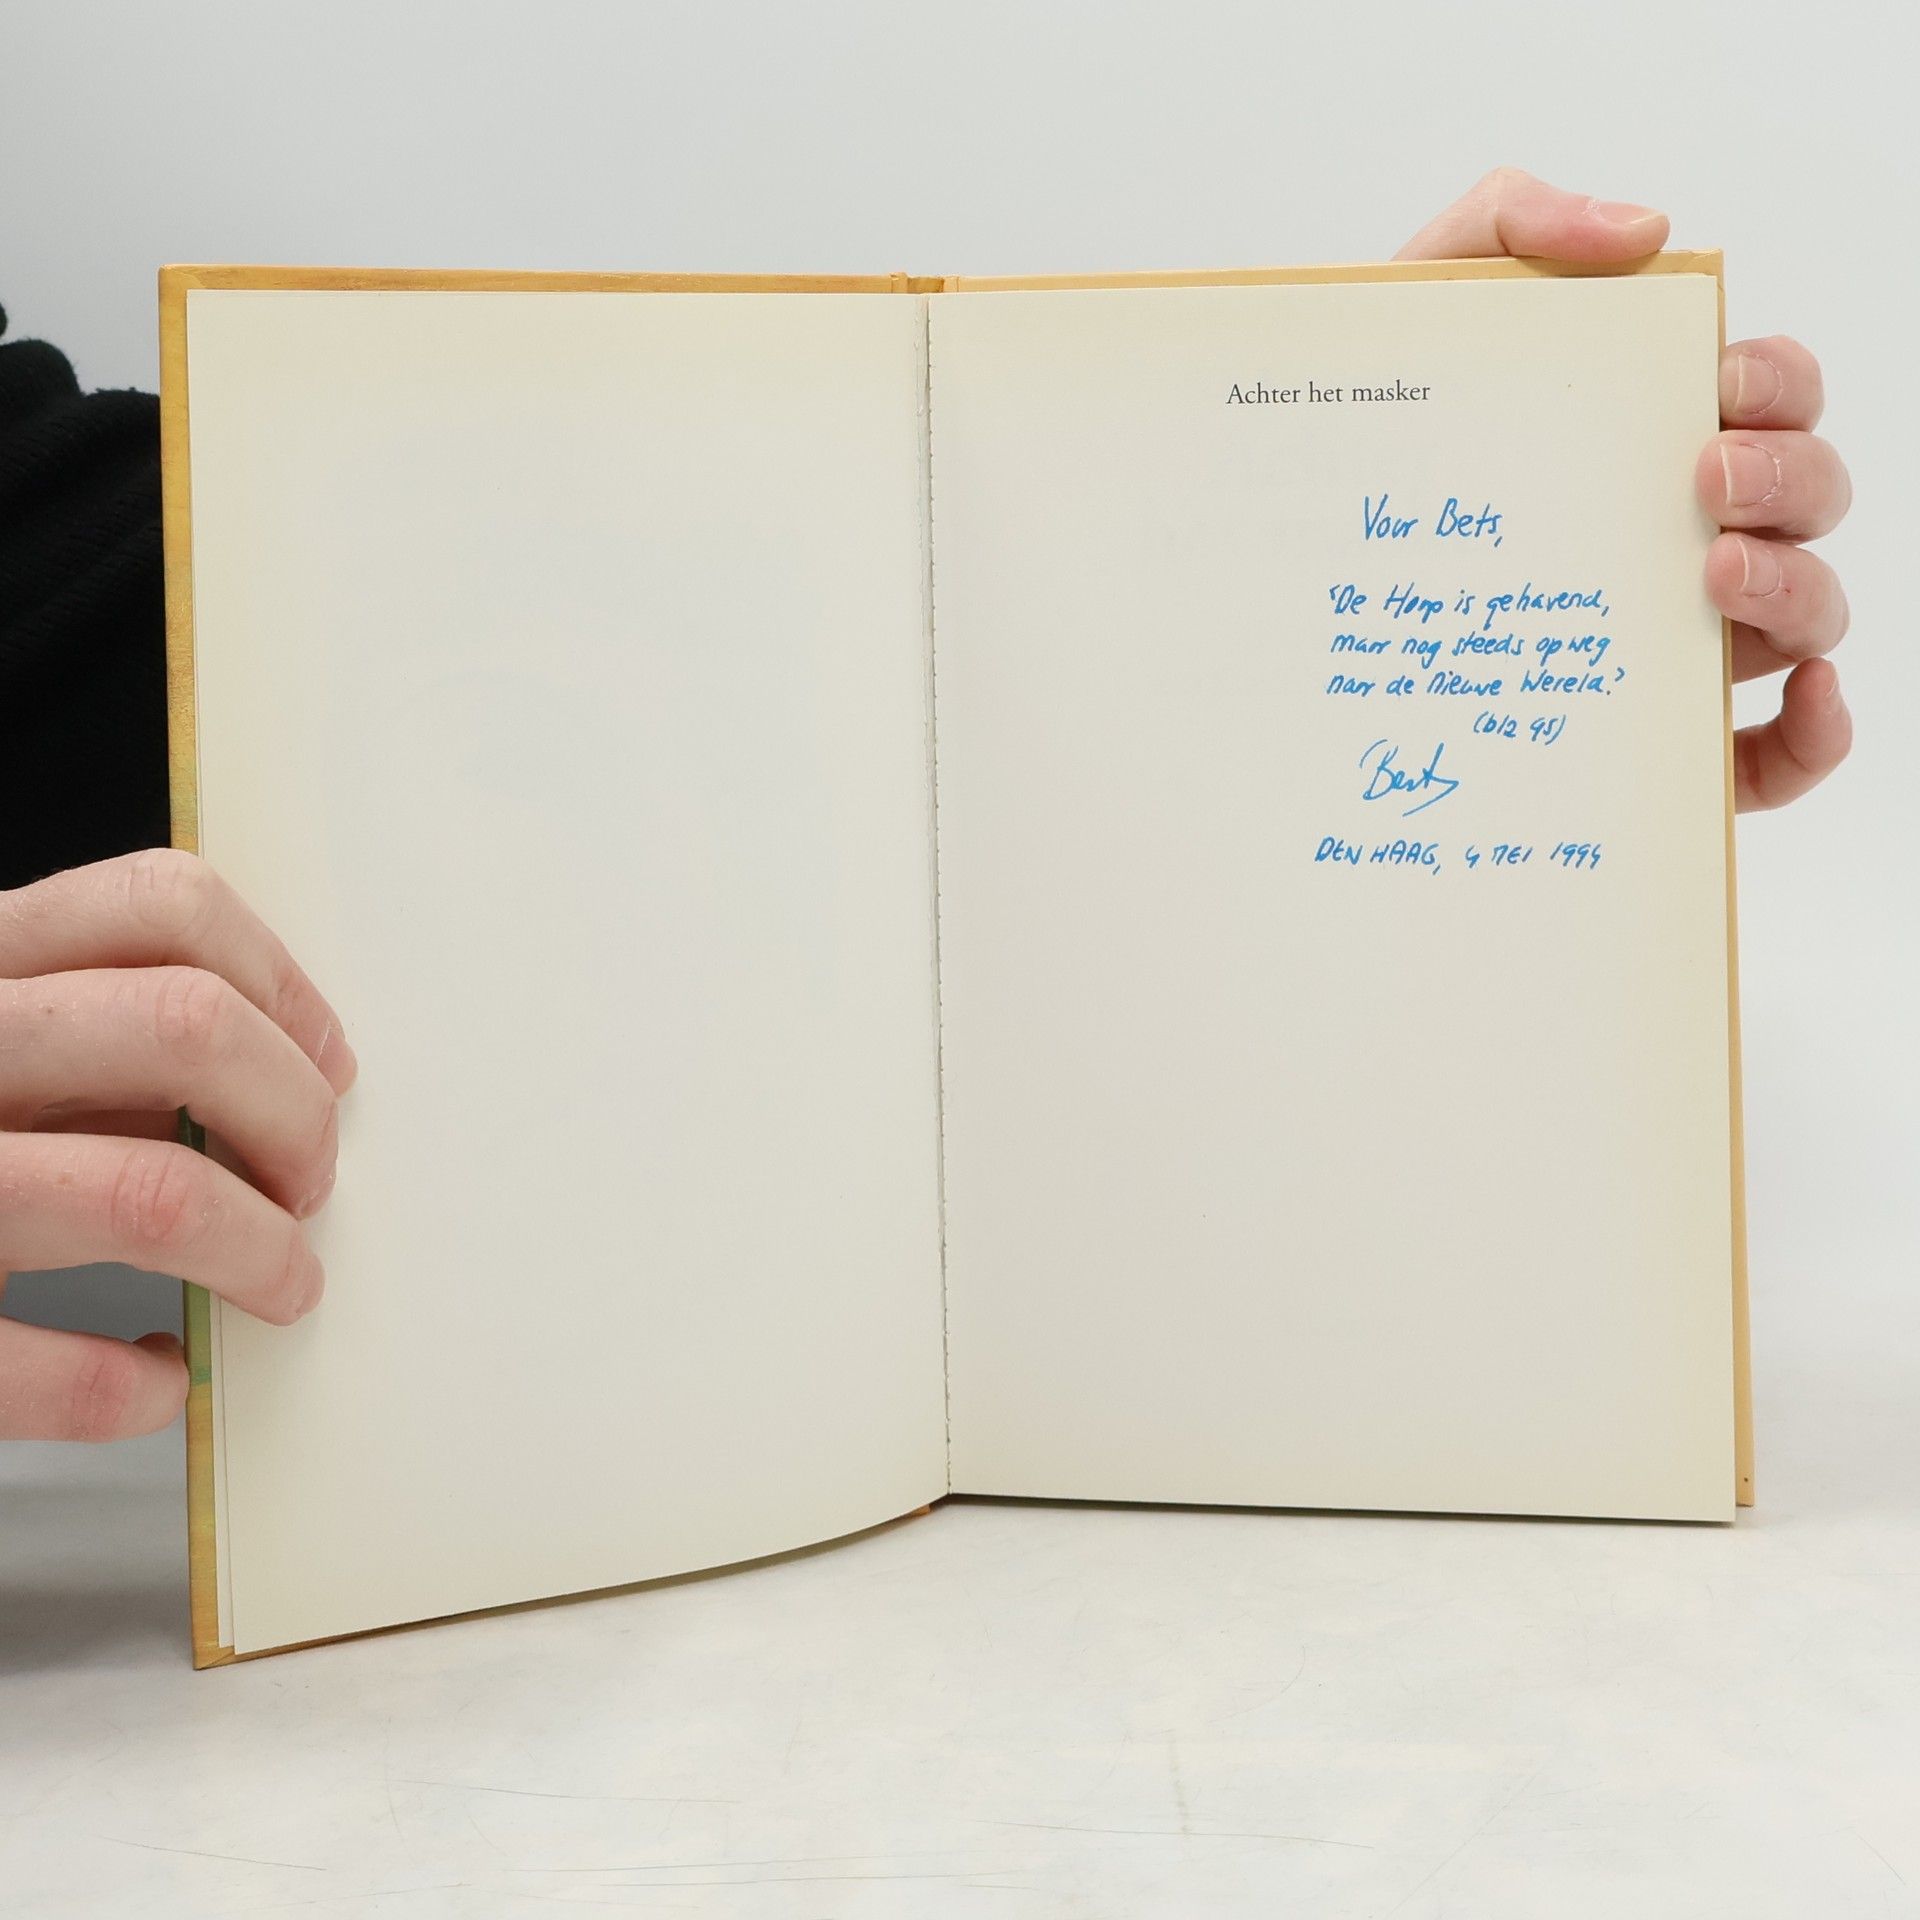 Achter het masker
Voor Bets,
'De Hoop is gehavend,
maar nog steeds op weg
naar de Nieuwe Wereld.'
(blz 95)
DEN HAAG, 4 MEI 1994